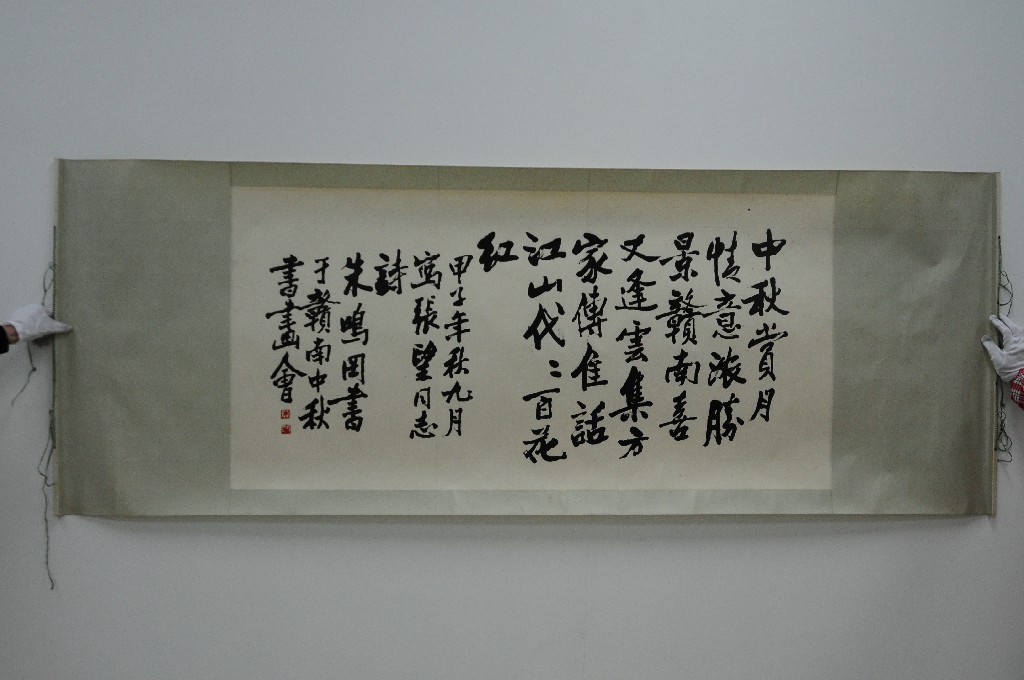 中秋赏月
情意浓勝
景贛南喜
又逢雲集方
家傳佳話
江山代〻百花
紅
甲子年秋九月
寫張望同志
詩
朱鳴岡書
于贛南中秋
書畫會